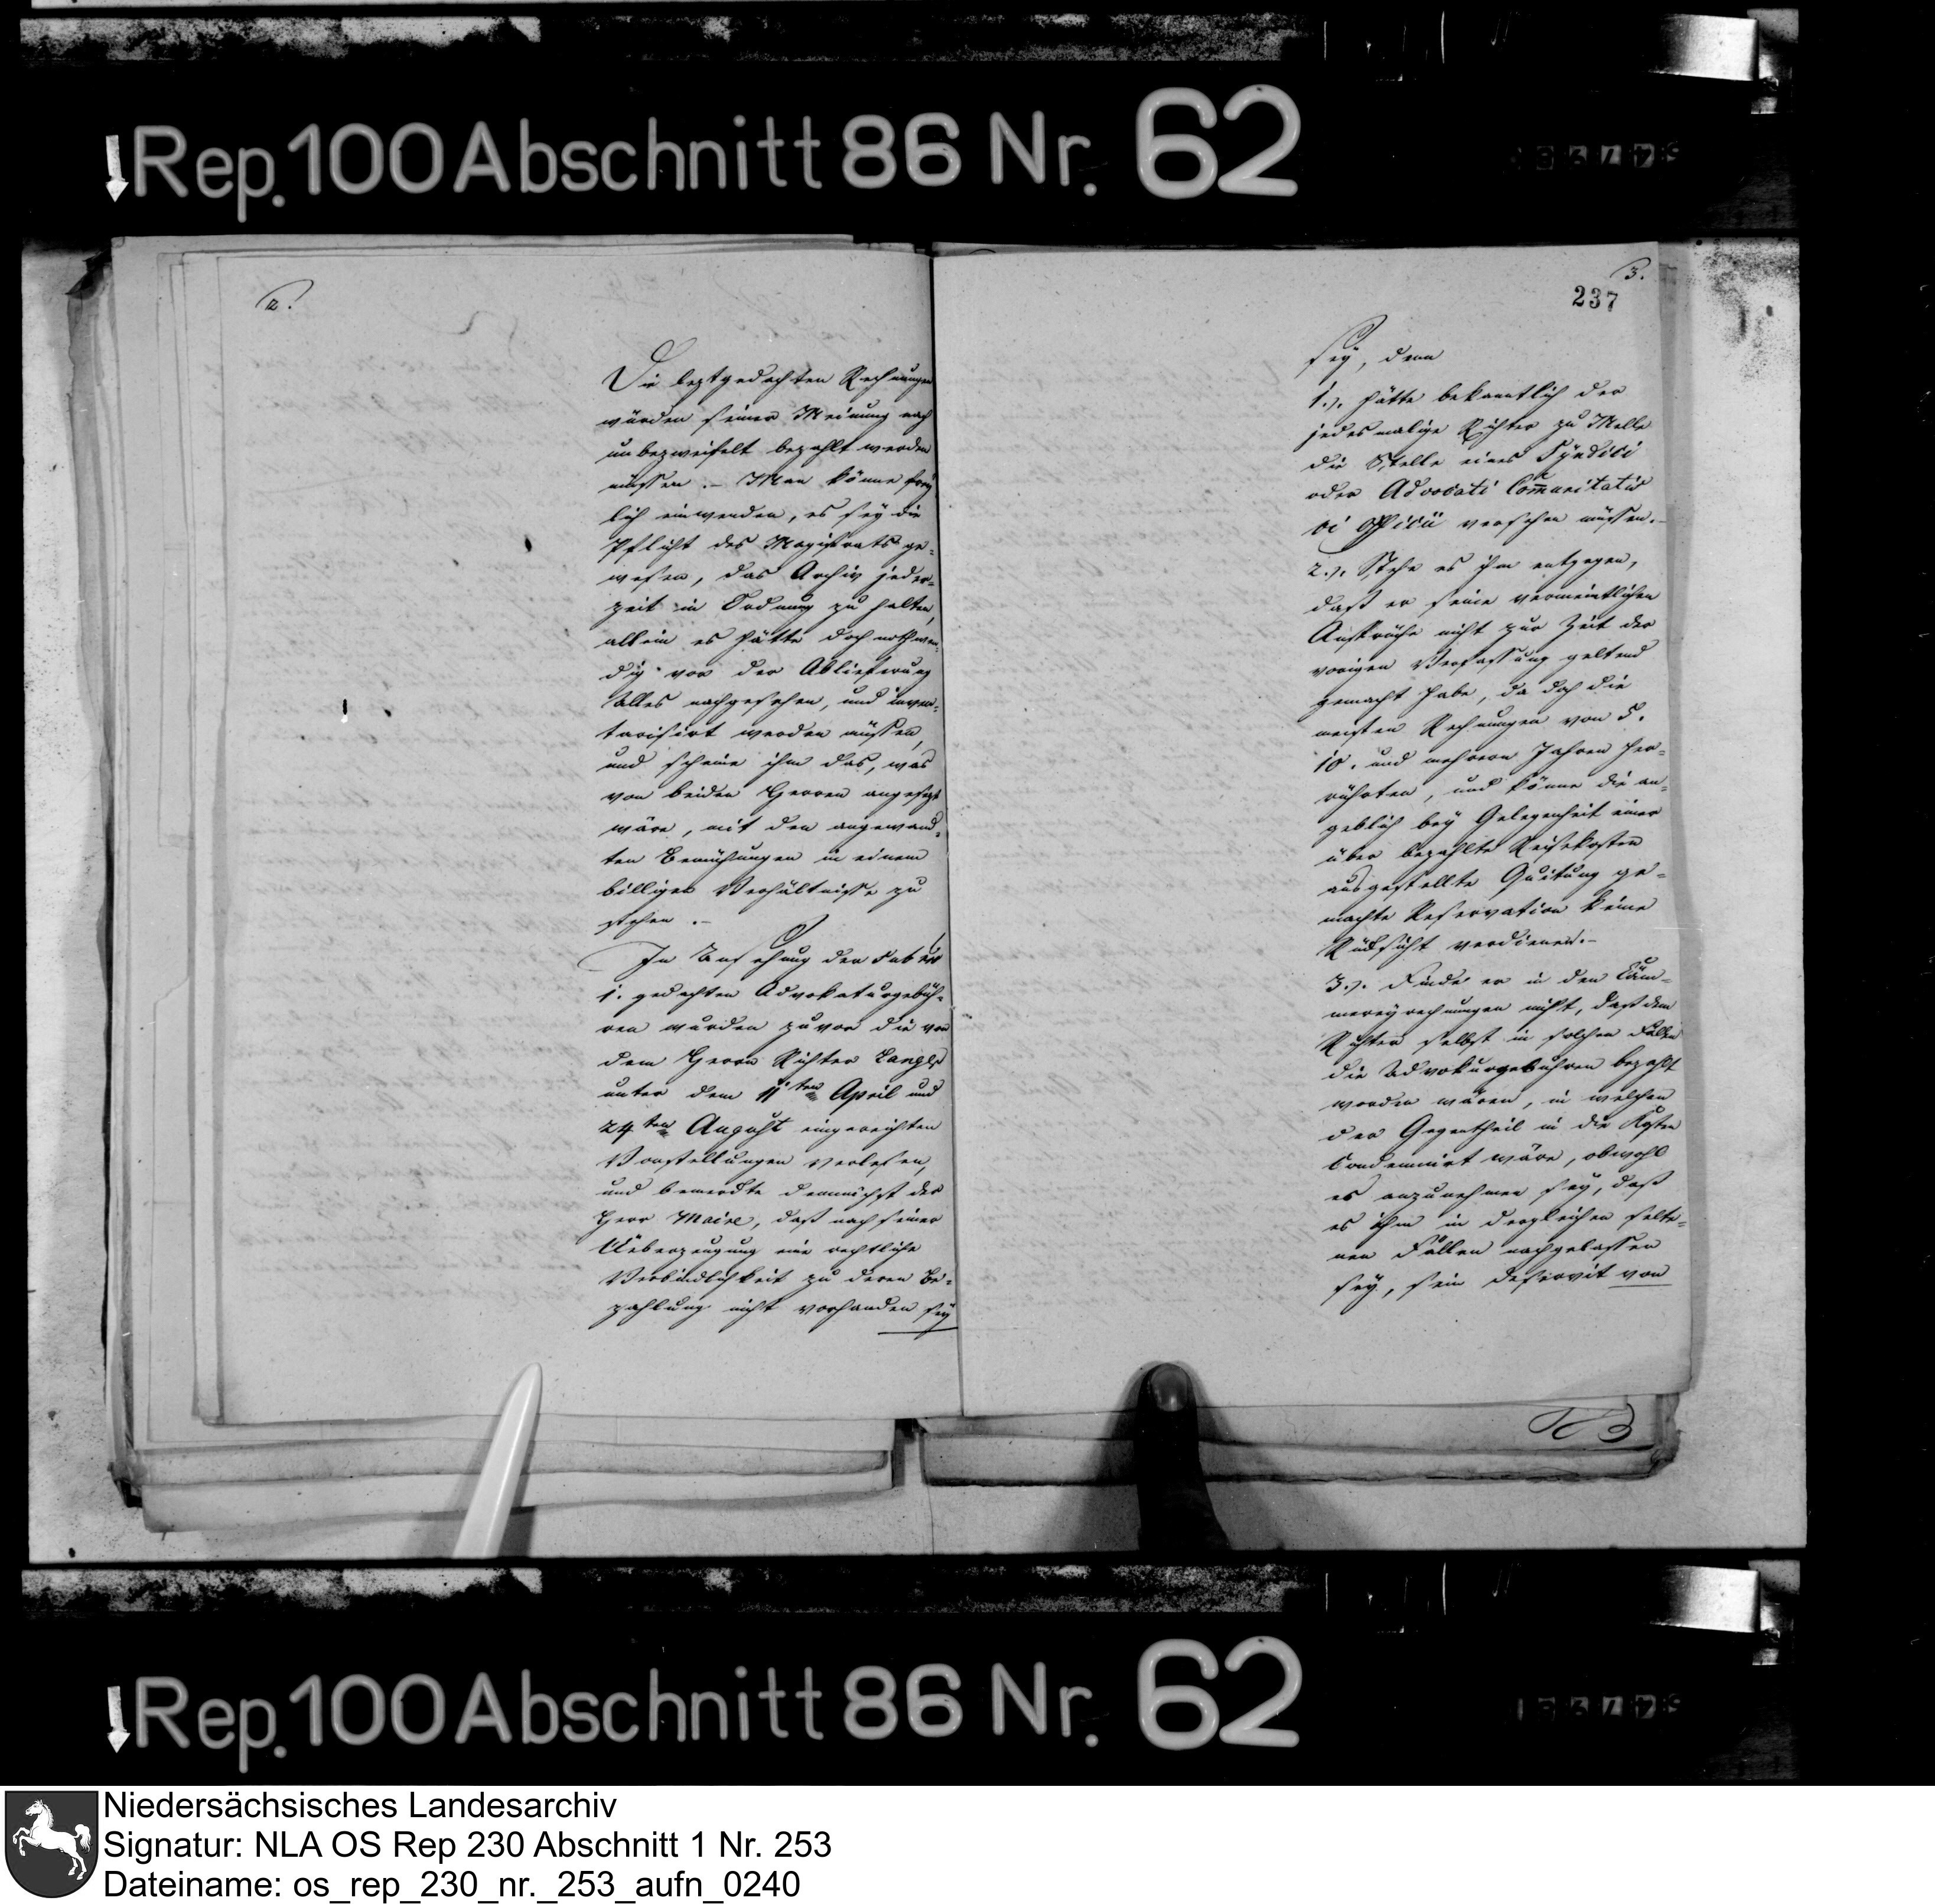 Rep. 100 Abschnitt 86 Nr. 62
2.
Die leztgedachten Rechnungen
würden seiner Meinung nach
unbezweifelt bezahlt werden
müssen. – Man könne frey
lich einwenden, es sey die
Pflicht des Magistrats ge-
wesen, das Archiv jeder-
zeit in Ordnung zu halten,
allein es hätte doch nothwen-
dig vor der Ablieferung
Alles nachgesehen, und inven-
tarisirt werden müssen,
und scheine ihm das, was
von beiden Herren angesezt
wäre, mit den angewand-
ten Bemühungen in einem
billigen Verhältnisse zu
stehen. –
In Ansehung der sub No
1. gedachten Advokaturgebüh-
ren wurden zuvor die von
dem Herrn Richter
unter dem 11ten April und
24ten August eingereichten
Vorstellungen verlesen,
und bemerkte demnächst der
Herr Maire, daß nach seiner
Ueberzeugung eine rechtliche
Verbindlichkeit zu deren Be-
zahlung nicht vorhanden sey
3.
237
sey, denn
1.). hätte bekanntlich der
jedesmalige Richter zu Melle
die Stelle eines Syndici
oder Advocati Com̄unitatis
vi Officii versehen müssen. –
2.). Stehe es ihm entgegen,
daß er seine vermeintlichen
Ansprüche nicht zur Zeit der
vorigen Verfassung geltend
gemacht habe, da doch die
meisten Rechnungen von 5.
10. und mehrern Jahren her-
rührten, und könne die an-
geblich bey Gelegenheit einer
über bezahlte Reisekosten
ausgestellte Quitung ge-
machte Reservation keine
Rücksicht verdienen. –
3.). Finde er in den Cäm-
mereyrechnungen nicht, daß dem
Richter selbst in solchen Fällen
die Advokurgebühren bezahlt
worden wären, in welchen
der Gegentheil in die Kosten
Condemnirt wäre, obwohl
es anzunehmen sey, daß
es ihm in dergleichen selte-
nen Fällen nachgelassen
sey, sein deservit von
Rep. 100 Abschnitt 86 Nr. 62
Niedersächsisches Landesarchiv
Signatur: NLA OS Rep 230 Abschnitt 1 Nr. 253
Dateiname: os_rep_230_nr._253_aufn_0240